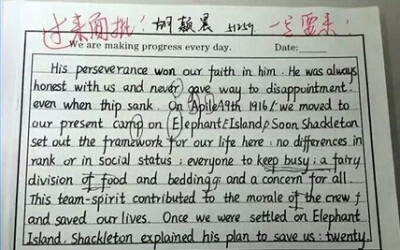 过来面批! 胡颖晨 51259 一定要来!
We are making progress every day. Date:
His perseverance won our faith in him. He was always
honest with us and never gave way to disappointment,
even when thip sank. On Aplie 19th 1916, we moved to
our present camp on Elephant Island, Soon Shackleton
set out the framework for our life here: no differences in
rank or in social status; everyone to keep busy; a fairy
division of food and bedding; and a concern for all.
This team-spirit contributed to the morale of the crew
and saved our lives. Once we were settled on Elephant
Island, Shackleton explained his plan to save us: twenty